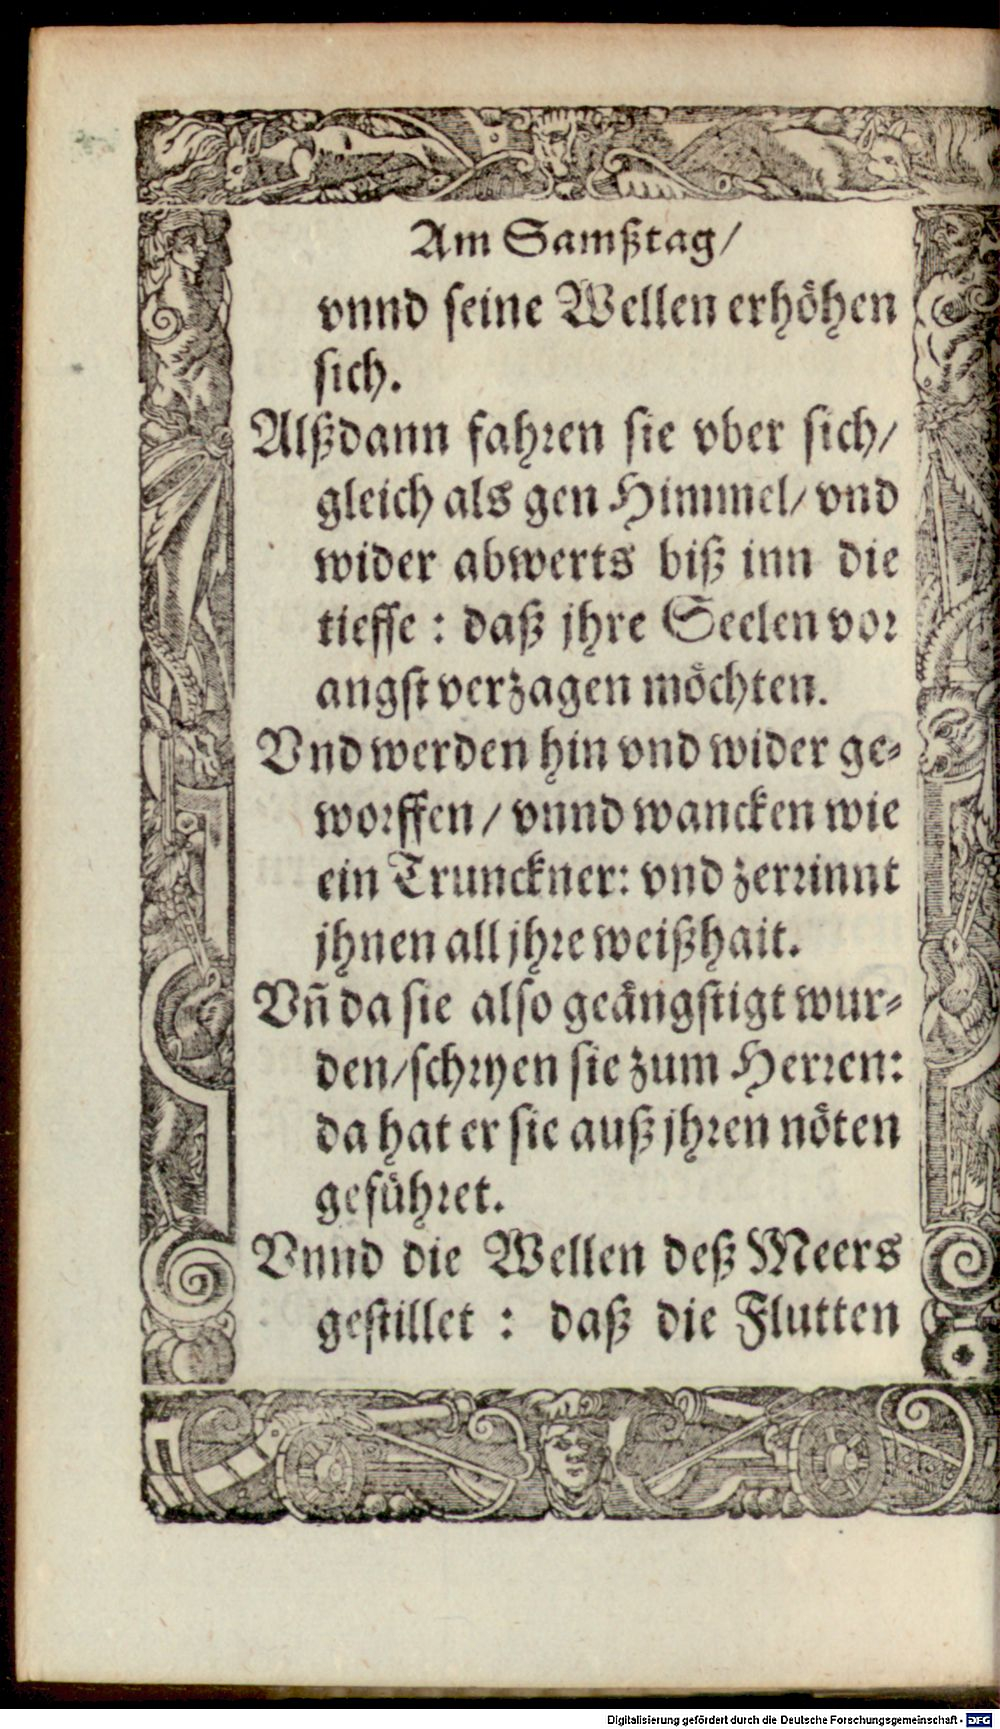 Am Samßtag/
vnnd seine Wellen erhöhen
sich.
Alßdann fahren sie vber sich/
gleich als gen Himmel/ vnd
wider abwerts biß inn die
tieffe : daß jhre Seelen vor
angst verzagen möchten.
Vnd werden hin vnd wider ge-
worffen / vnnd wancken wie
ein Trunckner: vnd zerrinnt
jhnen all jhre weißhait.
Vñ da sie also geängstigt wur-
den/schryen sie zum Herren:
da hat er sie auß jhren nöten
geführet.
Vnnd die Wellen deß Meers
gestillet : daß die Flutten
Digitalisierung gefördert durch die Deutsche Forschungsgemeinschaft - DFG